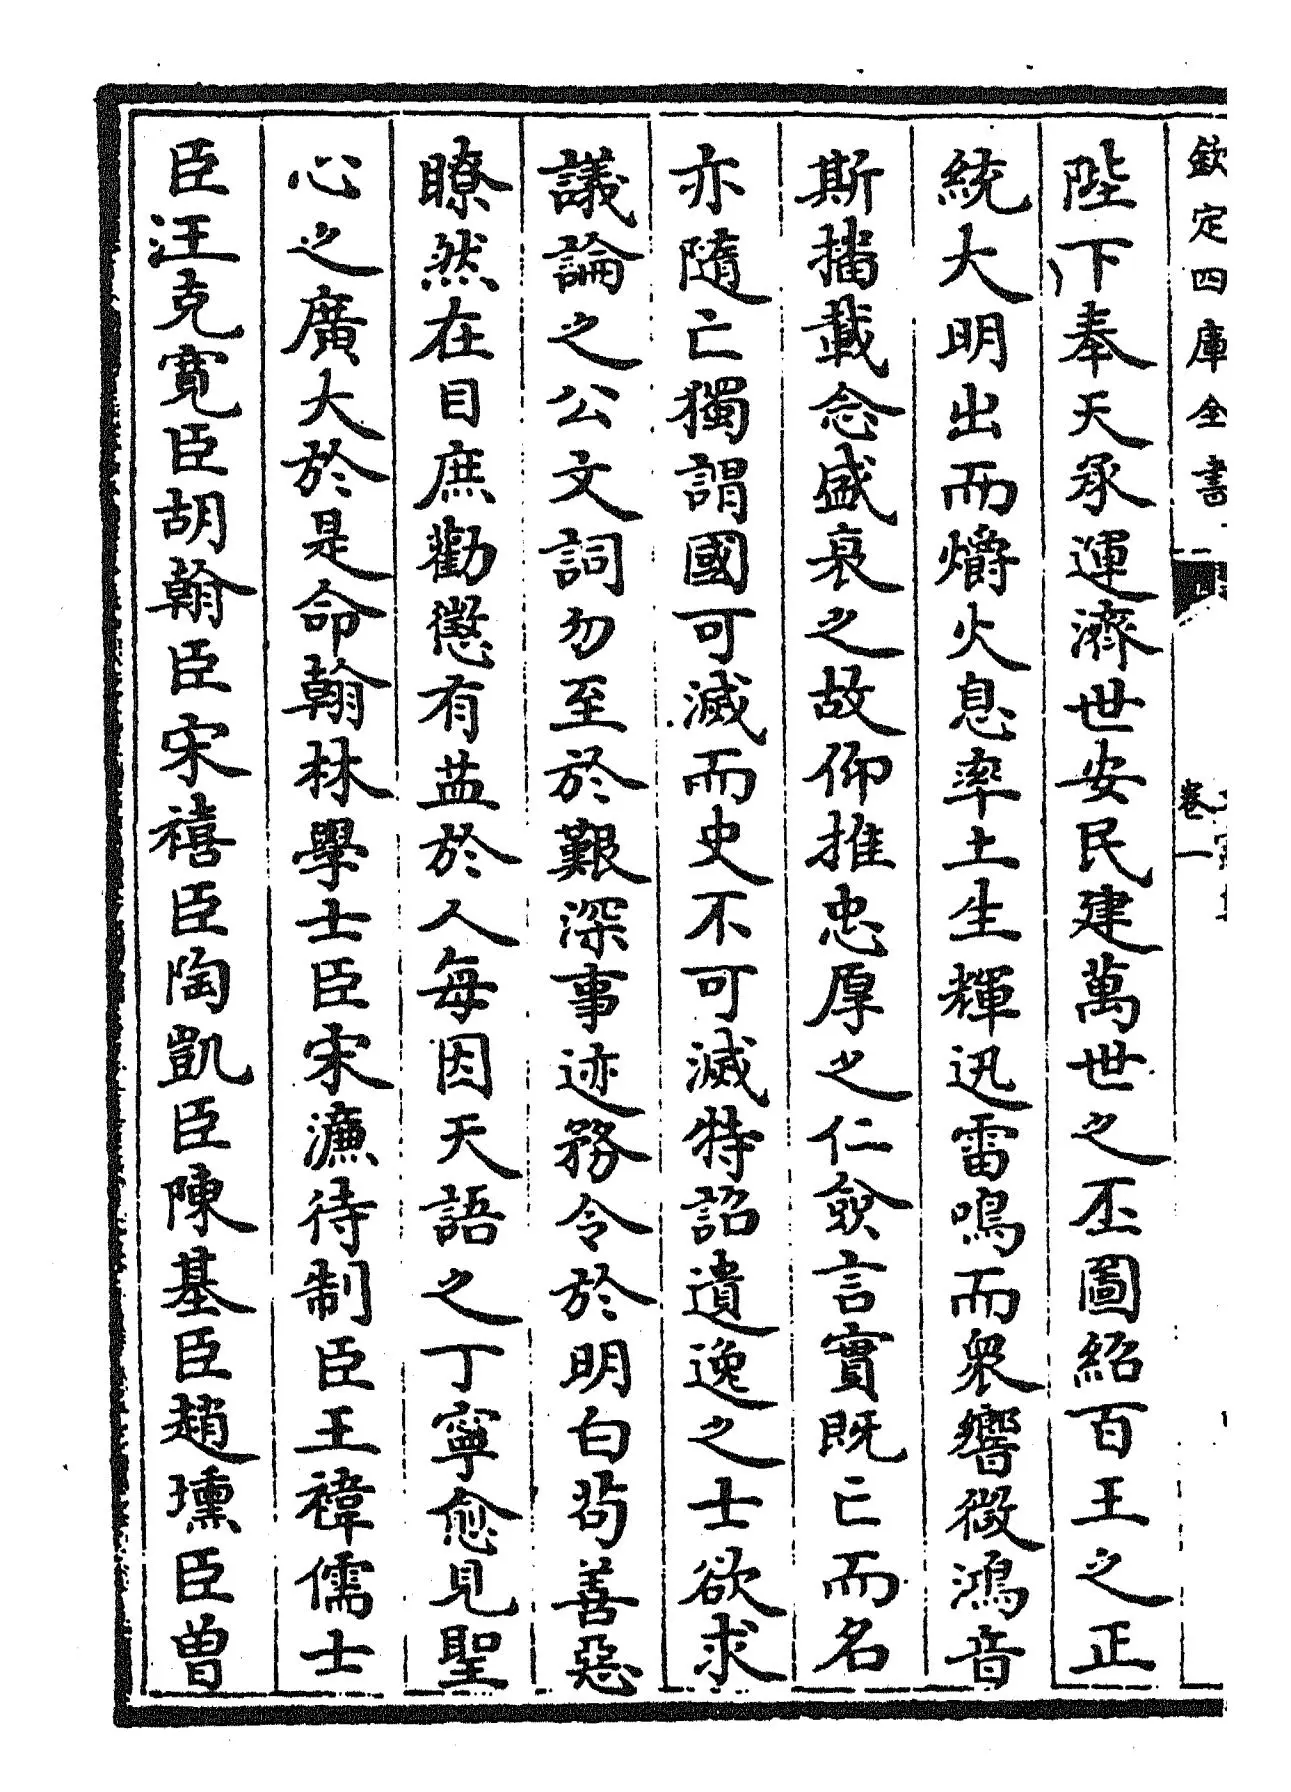 欽定四庫全書
卷一
陛下奉天承運濟世安民建萬世之丕圖紹百王之正
統大明出而爝火息率土生輝迅雷鳴而衆響微鴻音
斯播載念盛衰之故仰推忠厚之仁僉言實既亡而名
亦隨亡獨謂國可滅而史不可滅特詔遺逸之士欲求
議論之公文詞勿至於艱深事迹務令於明白茍善惡
瞭然在目庶勸懲有益於人每因天語之丁寧愈見聖
心之廣大於是命翰林學士臣宋濂待制臣王禕儒士
臣汪克寛臣胡翰臣宋禧臣陶凱臣陳基臣趙壎臣曽